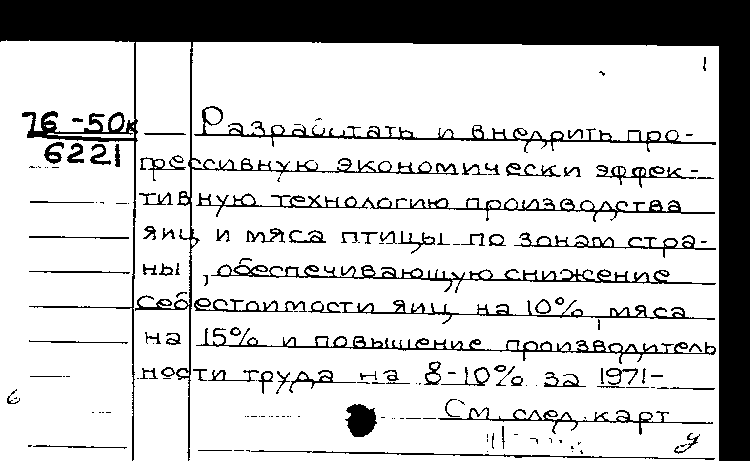 1
76-50к
6221
Разработать и внедрить про-
грессивную экономически эффек-
тивную технологию производства
яиц и мяса птицы по зонам стра-
ны, обеспечивающую снижение
себестоимости яиц на 10%, мяса
на 15% и повышение производитель
ности труда на 8-10% за 1971-
См. след. карт
6